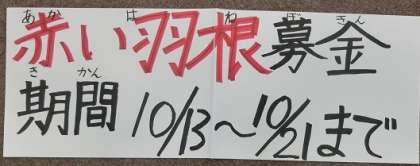 あか は ね ぼ きん
赤い羽根募金
き かん
期間 10/13～10/21まで